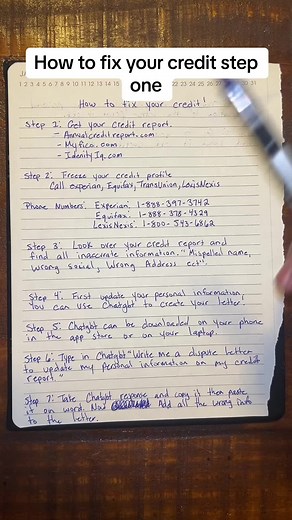 How to fix your credit step
one
How to fix your credit!
Step 1: Get your credit report.
- Annualcreditreport.com
- Myfico.com
- IdenityIq.com
Step 2: Freeze your credit profile
Call experian, Equifax, TransUnion, LexisNexis
Phone Numbers: Experian: 1-888-397-3742
Equifax: 1-888-378-4329
LexisNexis: 1-800-543-6862
Step 3: Look over your credit report and
find all inaccurate information. "Mispelled name,
wrong social, Wrong Address cct".
Step 4: First update your personal information,
you can use Chatgbt to create your letter!
Step 5: Chatgbt can be downloaded on your phone
in the app store or on your laptop.
Step 6: Type in Chatgbt "Write me a dispute letter
to update my personal information on my credit
report."
Step 7: Take Chatgbt response and copy it then paste
it on word. Now Add all the wrong info
to the letter.